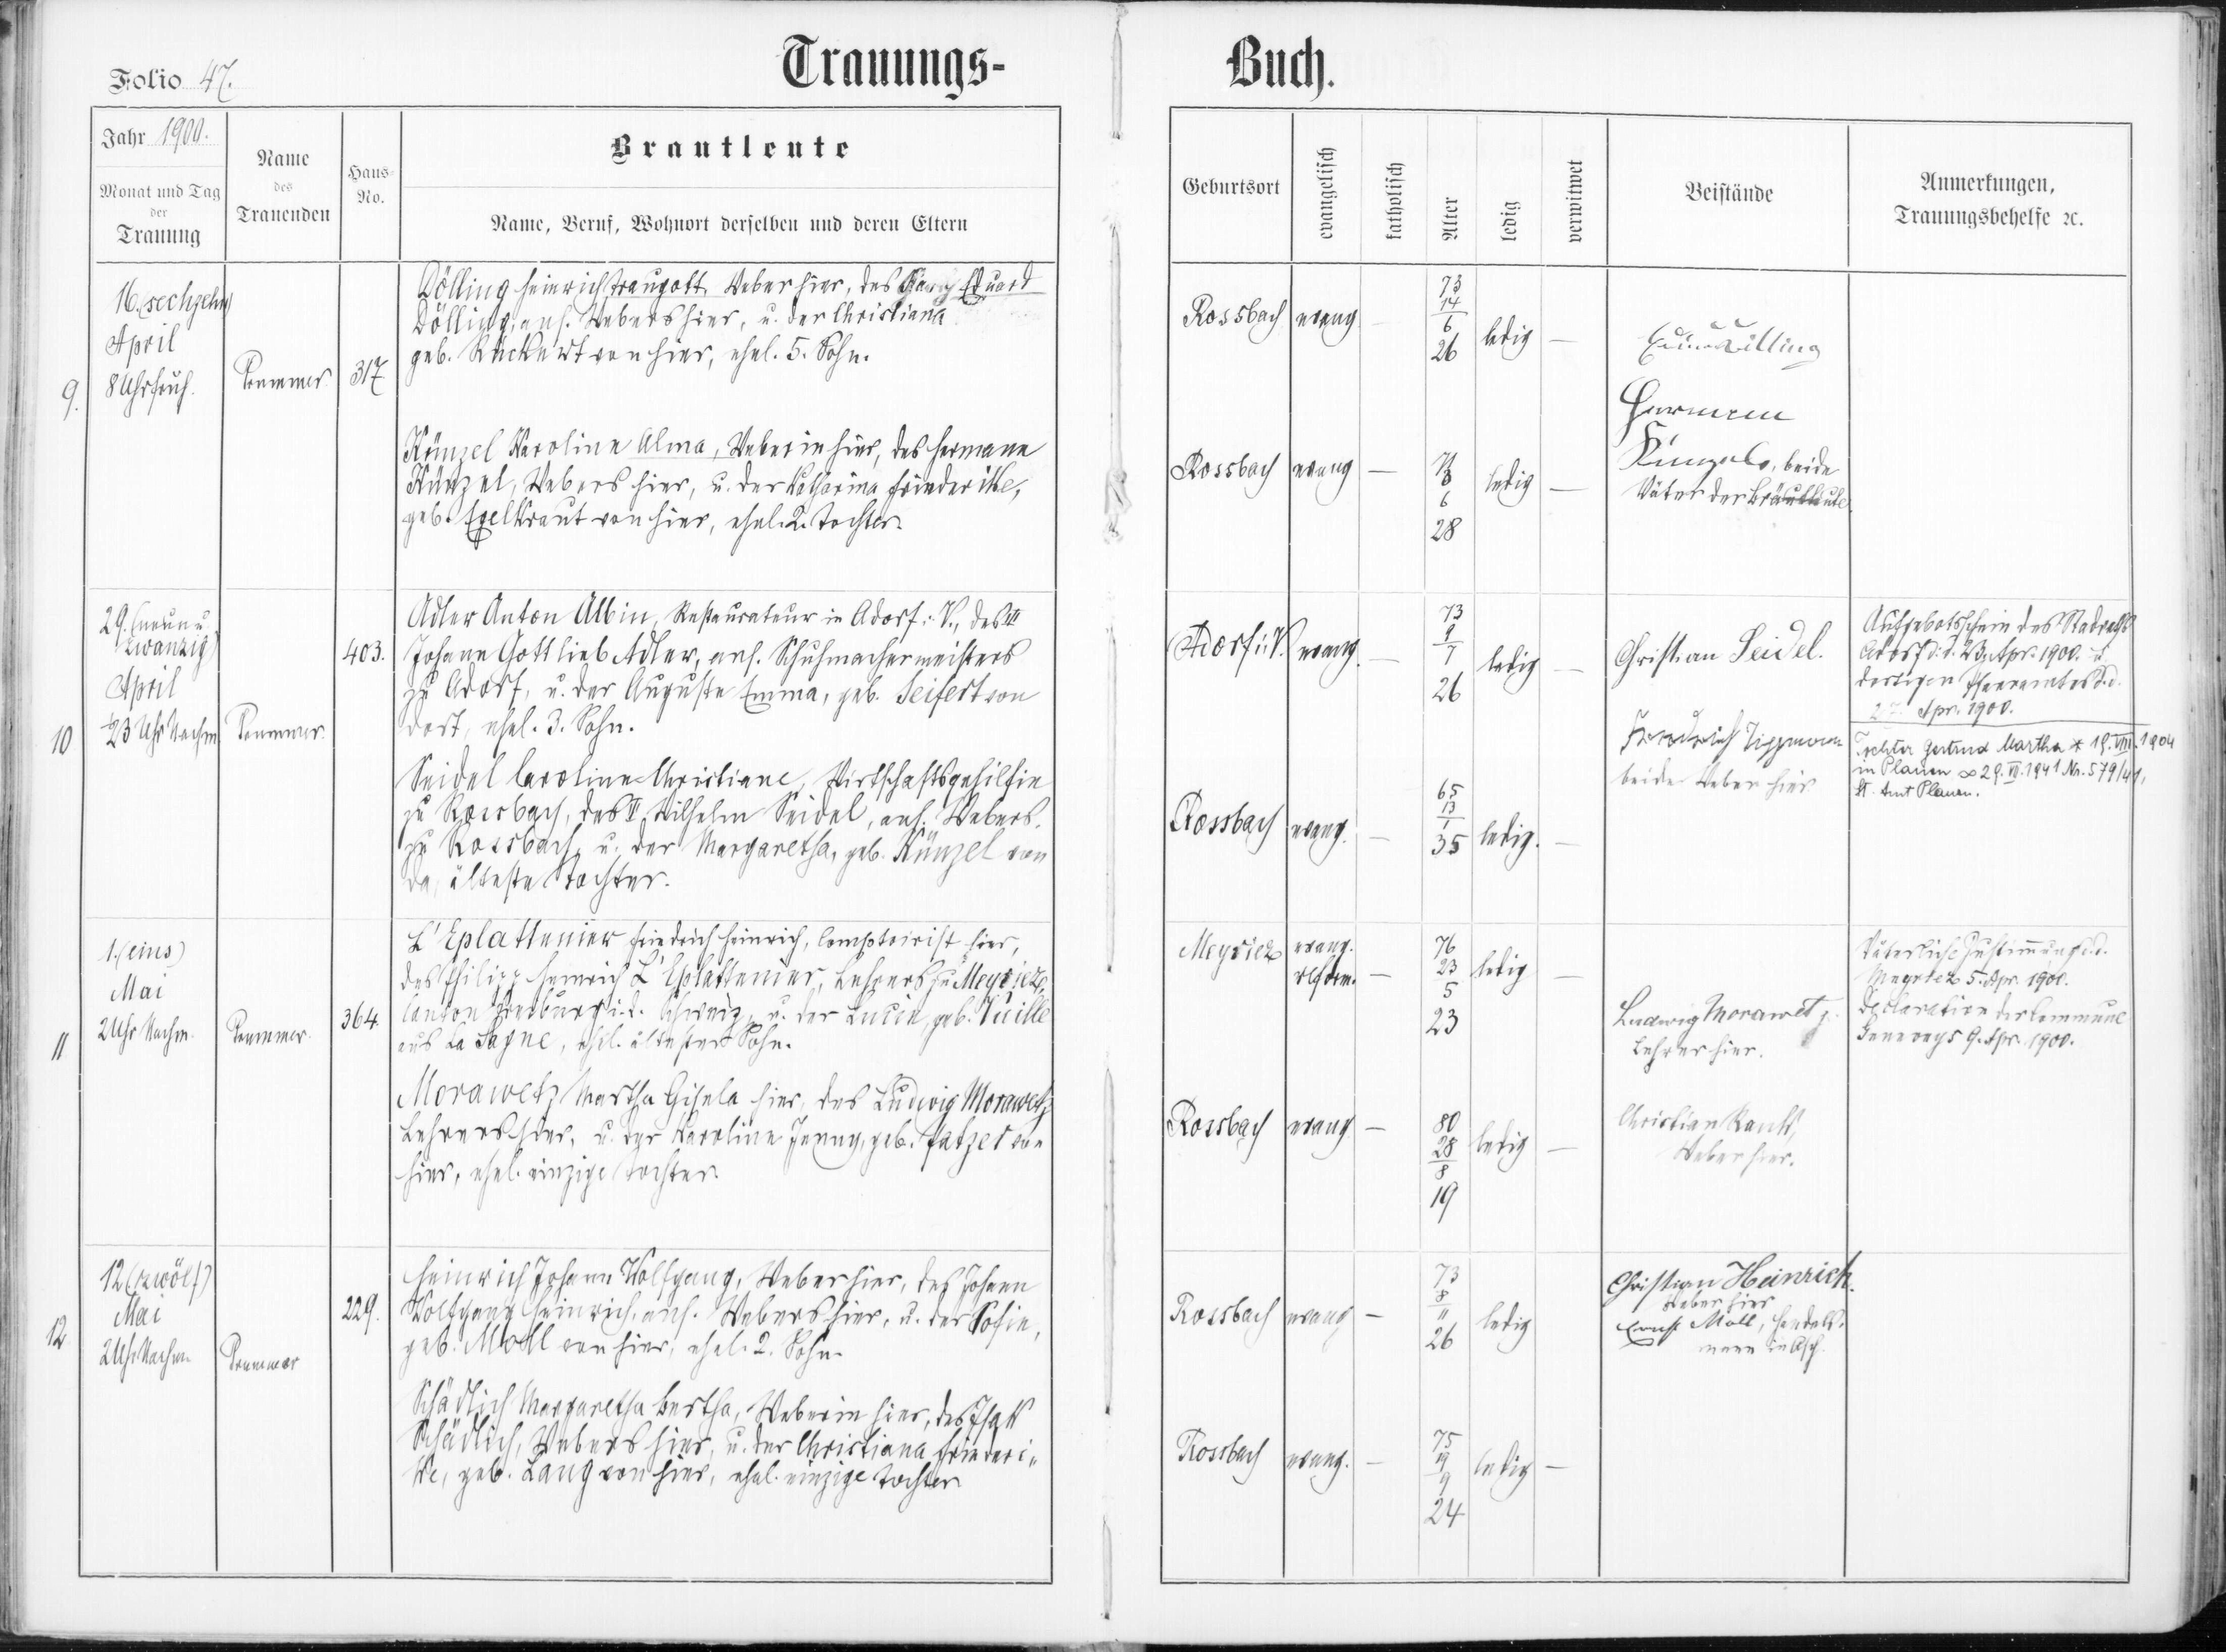 Folio 47.
Trauungs-
Buch.
Jahr 1900.
Monat und Tag
der
Trauung
Name
des
Trauenden
Haus-
No.
Brautleute
Name, Beruf, Wohnort derselben und deren Eltern
Geburtsort
evangelisch
katholisch
Alter
ledig
verwitwet
Beistände
Anmerkungen,
Trauungsbehelfe ꝛc.
9.
16. (sechzehn)
April
8 Uhr früh.
317
Dölling Heinrich Traugott, Weber hier, des Eduard
Dölling, ans. Webers hier, u. der Christiana
geb. Rückert von hier, ehel. 5. Sohn.
Rossbach
evang
—
73
14
6
26
ledig
—
Dölling
Künzel Karoline Alma, Weberin hier, des Hermann
Künzel, Webers hier, u. der Katharina Friederike,
geb. Egelkraut von hier, ehel. 2. Tochter.
Rossbach
evang
—
6
28
ledig
—
Hermann
Künzel, beide
Väter der Brautleute.
10
29. (neun u.
zwanzig)
April
½3 Uhr Nachm.
403.
Adler Anton Albin, Restaurateur in Adorf i. V., des
Johann Gottlieb Adler, ans. Schuhmachermeisters
zu Adorf, u. der Auguste Emma, geb. Seifert von
dort, ehel. 3. Sohn.
Adorf i. V.
evang.
—
73
9
7
26
ledig
—
Christian Seidel.
Friedrich Tippmann
beide Weber hier
Aufgebotsschein des Stadtraths
Adorf d. d. 23. Apr. 1900. u.
dortigen Pfarramtes d. d.
27. Apr. 1900.
Tochter Gertrud Martha * 19. VIII. 1904
in Plauen ∞ 29. VII. 1941 Nr. 579/41,
St. Amt Plauen.
Seidel Caroline Christiane, Wirtschaftsgehilfin
zu Rossbach, des Wilhelm Seidel, ans. Webers
zu Rossbach, u. der Margaretha, geb. Künzel von
da, älteste Tochter.
Rossbach
evang.
—
65
13
1
35
ledig.
—
11
1. (eins)
Mai
2 Uhr Nachm.
364.
L'Eplattenier Friedrich Heinrich, Comptoirist hier,
des Philipp Heinrich L'Eplattenier, Lehrers zu Meyriez,
Canton Freiburg i. d. Schweiz, u. der Lucie, geb. Vuille
aus La Sagne, ehel. ältester Sohn.
Meyriez
evang.
reform.
—
76
23
5
23
ledig
—
Ludwig Morawetz
Lehrer hier.
Väterliche Zustimmung d. d.
Meyriez 5. Apr. 1900.
Declaration der Commune
Geneveys 9. Apr. 1900.
Morawetz Martha Gisela hier, des Ludwig Morawetz
Lehrers hier, u. der Karoline Jenny, geb. Patzer von
hier, ehel. einzige Tochter.
Rossbach
evang
—
80
28
8
19
ledig
—
Christian Rank,
Weber hier.
12
12 (zwölf)
Mai
2 Uhr Nachm.
229.
Heinrich Johann Wolfgang, Weber hier, des Johann
Wolfgang Heinrich, ans. Webers hier, u. der Sofie,
geb. Moll von hier, ehel. 2. Sohn.
Rossbach
evang
—
73
8
11
26
ledig
Christian Heinrich.
Weber hier
Ernst Moll, Handels-
mann in Asch.
Schädlich Margaretha Bertha, Weberin hier, des Isak
Schädlich, Webers hier, u. der Christiana Friederi-
ke, geb. Lang von hier, ehel. einzige Tochter
Rossbach
evang.
—
75
19
9
24
ledig
—